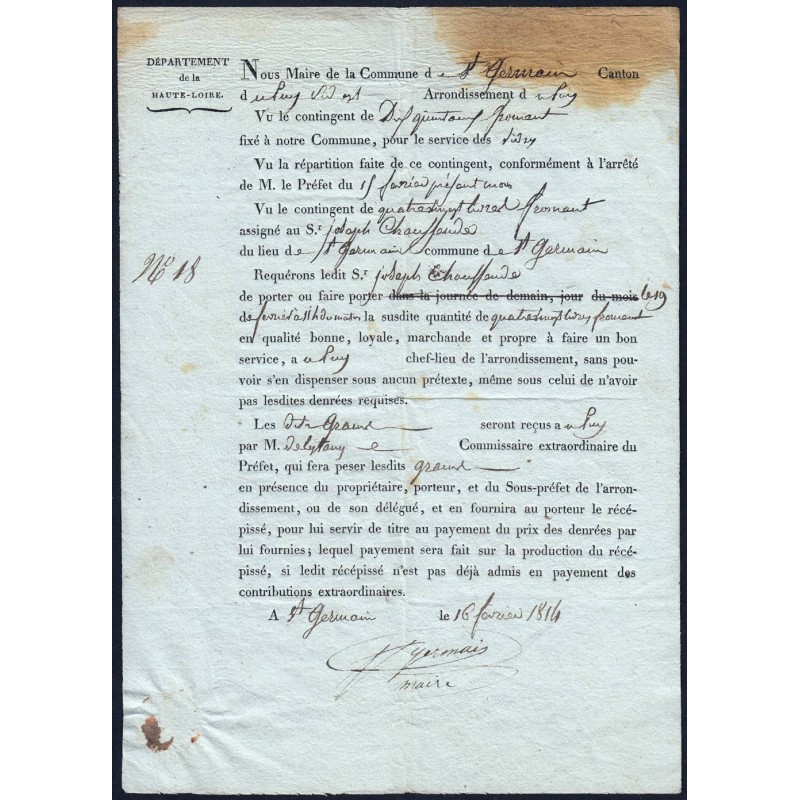 DÉPARTEMENT
de la
HAUTE-LOIRE.
Nous Maire de la Commune d e St Germain Canton
d u Puy Arrondissement d u Puy
Vu le contingent de quintaux froment
fixé à notre Commune, pour le service des
Vu la répartition faite de ce contingent, conformément à l'arrêté
de M. le Préfet du 15 février présent mois
Vu le contingent de quatrevingt livres froment
assigné au S.r joseph Chauffaude
du lieu de St Germain commune de St Germain
No 18
Requérons ledit S.r joseph Chauffaude
de porter ou faire porter dans la journée de demain, jour du mois le 19
de la susdite quantité de quatrevingt livres froment
en qualité bonne, loyale, marchande et propre à faire un bon
service, a u Puy chef-lieu de l'arrondissement, sans pou-
voir s'en dispenser sous aucun prétexte, même sous celui de n'avoir
pas lesdites denrées requises.
Les dits Grains seront reçus a u Puy
par M. Commissaire extraordinaire du
Préfet, qui fera peser lesdits grains
en présence du propriétaire, porteur, et du Sous-préfet de l'arron-
dissement, ou de son délégué, et en fournira au porteur le récé-
pissé, pour lui servir de titre au payement du prix des denrées par
lui fournies; lequel payement sera fait sur la production du récé-
pissé, si ledit récépissé n'est pas déjà admis en payement des
contributions extraordinaires.
A St Germain le 16 février 1814
St germain
maire